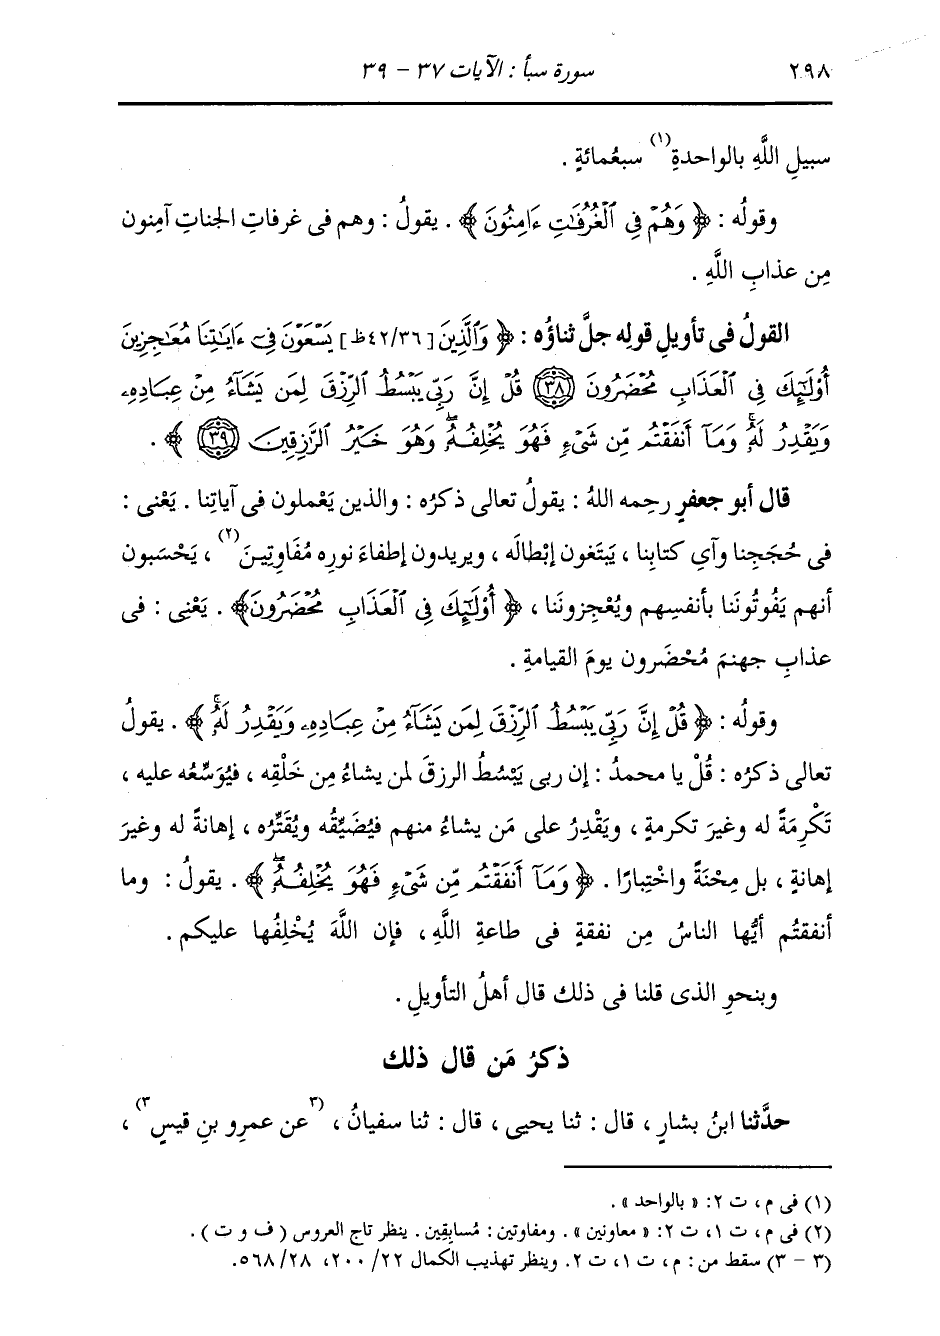 ٢٩٨ سورة سبأ : الآيات ٣٧ - ٣٩
سبيلِ اللَّهِ بالواحدةِ(١) سبعُمائةٍ .
وقولُه : ﴿ وَهُمْ فِي ٱلْغُرُفَٰتِ ءَامِنُونَ ﴾ . يقولُ : وهم فى غرفاتِ الجناتِ آمِنون
مِن عذابِ اللَّهِ .
القولُ فى تأويلِ قولِه جلَّ ثناؤُه : ﴿ وَٱلَّذِينَ [٤٢/٣٦ظ] يَسْعَوْنَ فِىٓ ءَايَٰتِنَا مُعَٰجِزِينَ
أُوْلَٰٓئِكَ فِي ٱلْعَذَابِ مُحْضَرُونَ ٣٨ قُلْ إِنَّ رَبِّي يَبْسُطُ ٱلرِّزْقَ لِمَن يَشَآءُ مِنْ عِبَادِهِۦ
وَيَقْدِرُ لَهُۥۚ وَمَآ أَنفَقْتُم مِّن شَىْءٍ فَهُوَ يُخْلِفُهُۥۖ وَهُوَ خَيْرُ ٱلرَّٰزِقِينَ ٣٩ ﴾ .
قال أبو جعفرٍ رحِمه اللهُ : يقولُ تعالى ذكرُه : والذين يَعْملون فى آياتِنا . يَعْنى :
فى حُجَجِنا وآىِ كتابِنا ، يَبْتَغون إبْطالَه ، ويريدون إطفاءَ نورِه مُفَاوِتِينَ(٢) ، يَحْسَبون
أنهم يَفُوتُونَنا بأنفسِهم ويُعْجِزوننَا ، ﴿ أُوْلَٰٓئِكَ فِي ٱلْعَذَابِ مُحْضَرُونَ﴾ . يَعْنِى : فى
عذابِ جهنمَ مُحْضَرون يومَ القيامةِ .
وقولُه : ﴿ قُلْ إِنَّ رَبِّي يَبْسُطُ ٱلرِّزْقَ لِمَن يَشَآءُ مِنْ عِبَادِهِۦ وَيَقْدِرُ لَهُۥۚ ﴾ . يقولُ
تعالى ذكرُه : قُلْ يا محمدُ : إن ربى يَبْسُطُ الرزقَ لمن يشاءُ مِن خَلْقِه ، فيُوَسِّعُه عليه ،
تَكْرِمَةً له وغيرَ تكرمةٍ ، ويَقْدِرُ على مَن يشاءُ منهم فيُضَيِّقُه ويُقَتِّرُه ، إهانةً له وغيرَ
إهانةٍ ، بل مِحْنَةً واخْتِبارًا . ﴿ وَمَآ أَنفَقْتُم مِّن شَىْءٍ فَهُوَ يُخْلِفُهُۥۖ ﴾ . يقولُ : وما
أنفقتُم أيُّها الناسُ مِن نفقةٍ فى طاعةِ اللَّهِ ، فإن اللَّهَ يُخْلِفُها عليكم .
وبنحوِ الذى قلنا فى ذلك قال أهلُ التأويلِ .
ذكرُ مَن قال ذلك
حدَّثنا ابنُ بشارٍ ، قال : ثنا يحيى ، قال : ثنا سفيانُ ، (٣عن عمرِو بنِ قيسٍ٣) ،
(١) فى م ، ت ٢: « بالواحد » .
(٢) فى م ، ت ١، ت ٢: « معاونين » . ومفاوتين : مُسابِقِين . ينظر تاج العروس ( ف و ت ) .
(٣ - ٣) سقط من : م ، ت ١، ت ٢. وينظر تهذيب الكمال ٢٢/ ٢٠٠، ٢٨/ ٥٦٨.